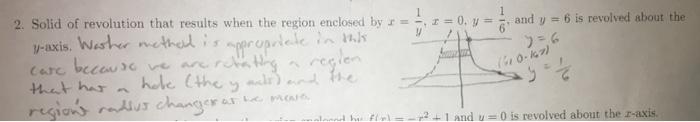 2. Solid of revolution that results when the region enclosed by x = 1/y, x = 0, y = 1/6, and y = 6 is revolved about the
y-axis. Washer method is appropriate in this
case because we are rotating a region
that has a hole (the y axis) and the
region's radius changes as we
y = 6
y = 1/6
= -x² + 1 and y = 0 is revolved about the x-axis.